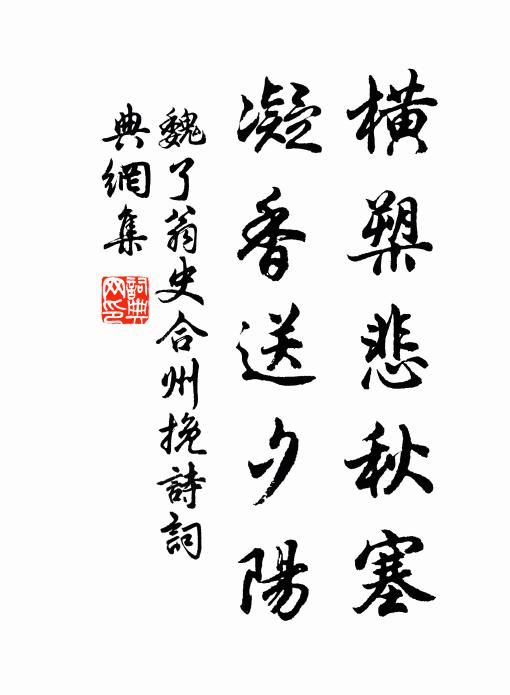 橫槊悲秋塞
凝香送夕陽
魏了翁史合州挽詩詞
典網集
詞典網印